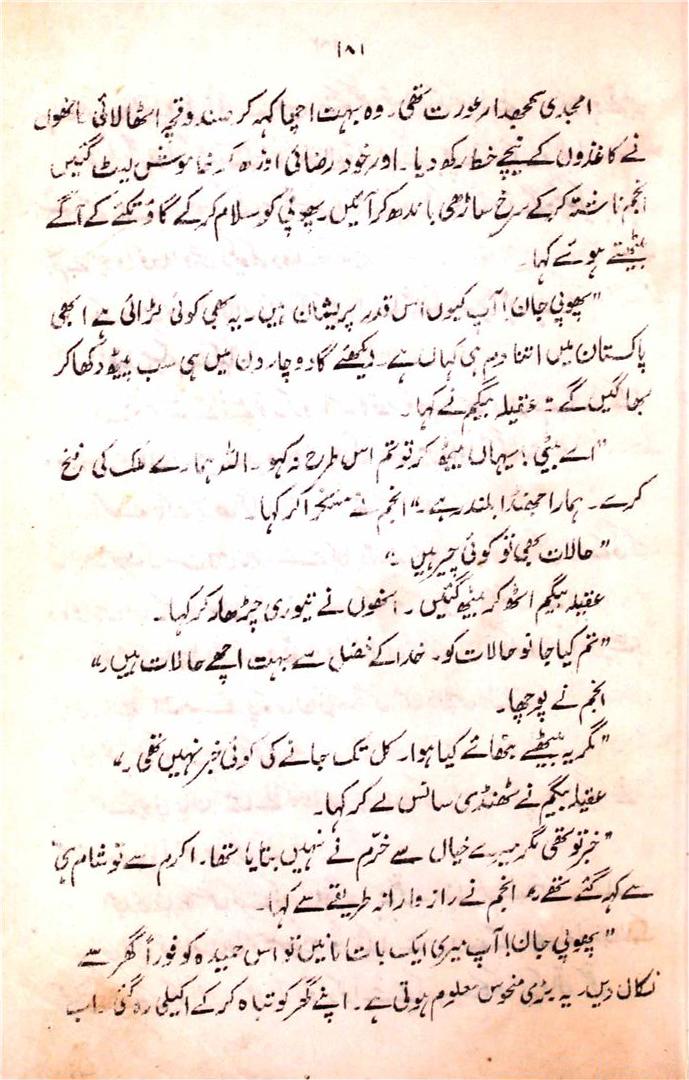 ۱۸۱
امجدی سمجھدار عورت تھی۔ وہ بہت اچھا کہہ کر صندوقچہ اٹھا لائی انھوں
نے کاغذوں کے نیچے خط رکھ دیا۔ اور خود رضائی اوڑھ کر خاموش لیٹ گئیں
انجم ناشتہ کر کے سرخ ساڑھی باندھ کر آئیں۔ پھوپی کو سلام کر کے گاؤ تکئے کے آگے
بیٹھتے ہوئے کہا۔
"پھوپی جان! آپ کیوں اس قدر پریشان ہیں۔ یہ بھی کوئی لڑائی ہے ابھی
پاکستان میں اتنا دم ہی کہاں ہے۔ دیکھئے گا دو چار دن میں ہی سب پیٹھ دکھا کر
بھاگیں گے" عقیلہ بیگم نے کہا۔
"اے بیٹی! یہاں بیٹھ کر تو تم اس طرح نہ کہو۔ اللہ ہمارے ملک کی فتح
کرے۔ ہمارا جھنڈا بلند رہے۔" انجم نے مسکرا کر کہا۔
"حالات بھی تو کوئی چیز ہیں۔"
عقیلہ بیگم اٹھ کر بیٹھ گئیں۔ انھوں نے تیوری چڑھا کر کہا۔
"تم کیا جانو حالات کو۔ خدا کے فضل سے بہت اچھے حالات ہیں۔"
انجم نے پوچھا۔
"مگر یہ بیٹھے بٹھائے کیا ہوا۔ کل تک جانے کی کوئی خبر نہیں تھی۔"
عقیلہ بیگم نے ٹھنڈی سانس لے کر کہا۔
"خبر تو تھی مگر میرے خیال سے خرّم نے نہیں بتایا تھا۔ اکرم سے تو شام ہی
سے کہہ گئے تھے" انجم نے رازدارانہ طریقے سے کہا۔
"پھوپی جان! آپ میری ایک بات مانیں تو اس حمیدہ کو فوراً گھر سے
نکال دیں۔ یہ بڑی منحوس معلوم ہوتی ہے۔ اپنے گھر کو تباہ کر کے اکیلی رہ گئی۔ اب